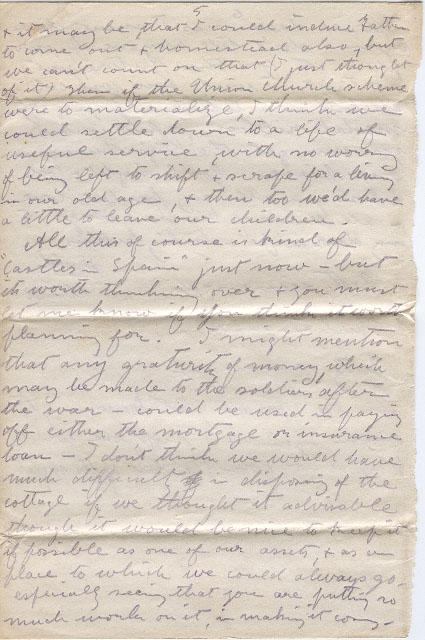 5
& it may be that I could induce Father
to come out & homestead also, but
we can't count on that (I just thought
of it) Then if the Union Church scheme
were to materialize, I think we
could settle down to a life of
useful service, with no worry
of being left to shift & scrape for a living
in our old age, & then too we'd have
a little to leave our children.
All this of course is kind of
"Castles in Spain" just now – but
its worth thinking over & you must
let me know if you think it worth
planning for. I might mention
that any gratuity of money which
may be made to the soldiers after
the war – could be used in paying
off either the mortgage or insurance
loan – I dont think we would have
much difficult in disposing of the
cottage if we thought it advisable
though it would be nice to keep it
if possible as one of our assets, & as a
place to which we could always go –
especially seeing that you are putting so
much work on it, in making it com-